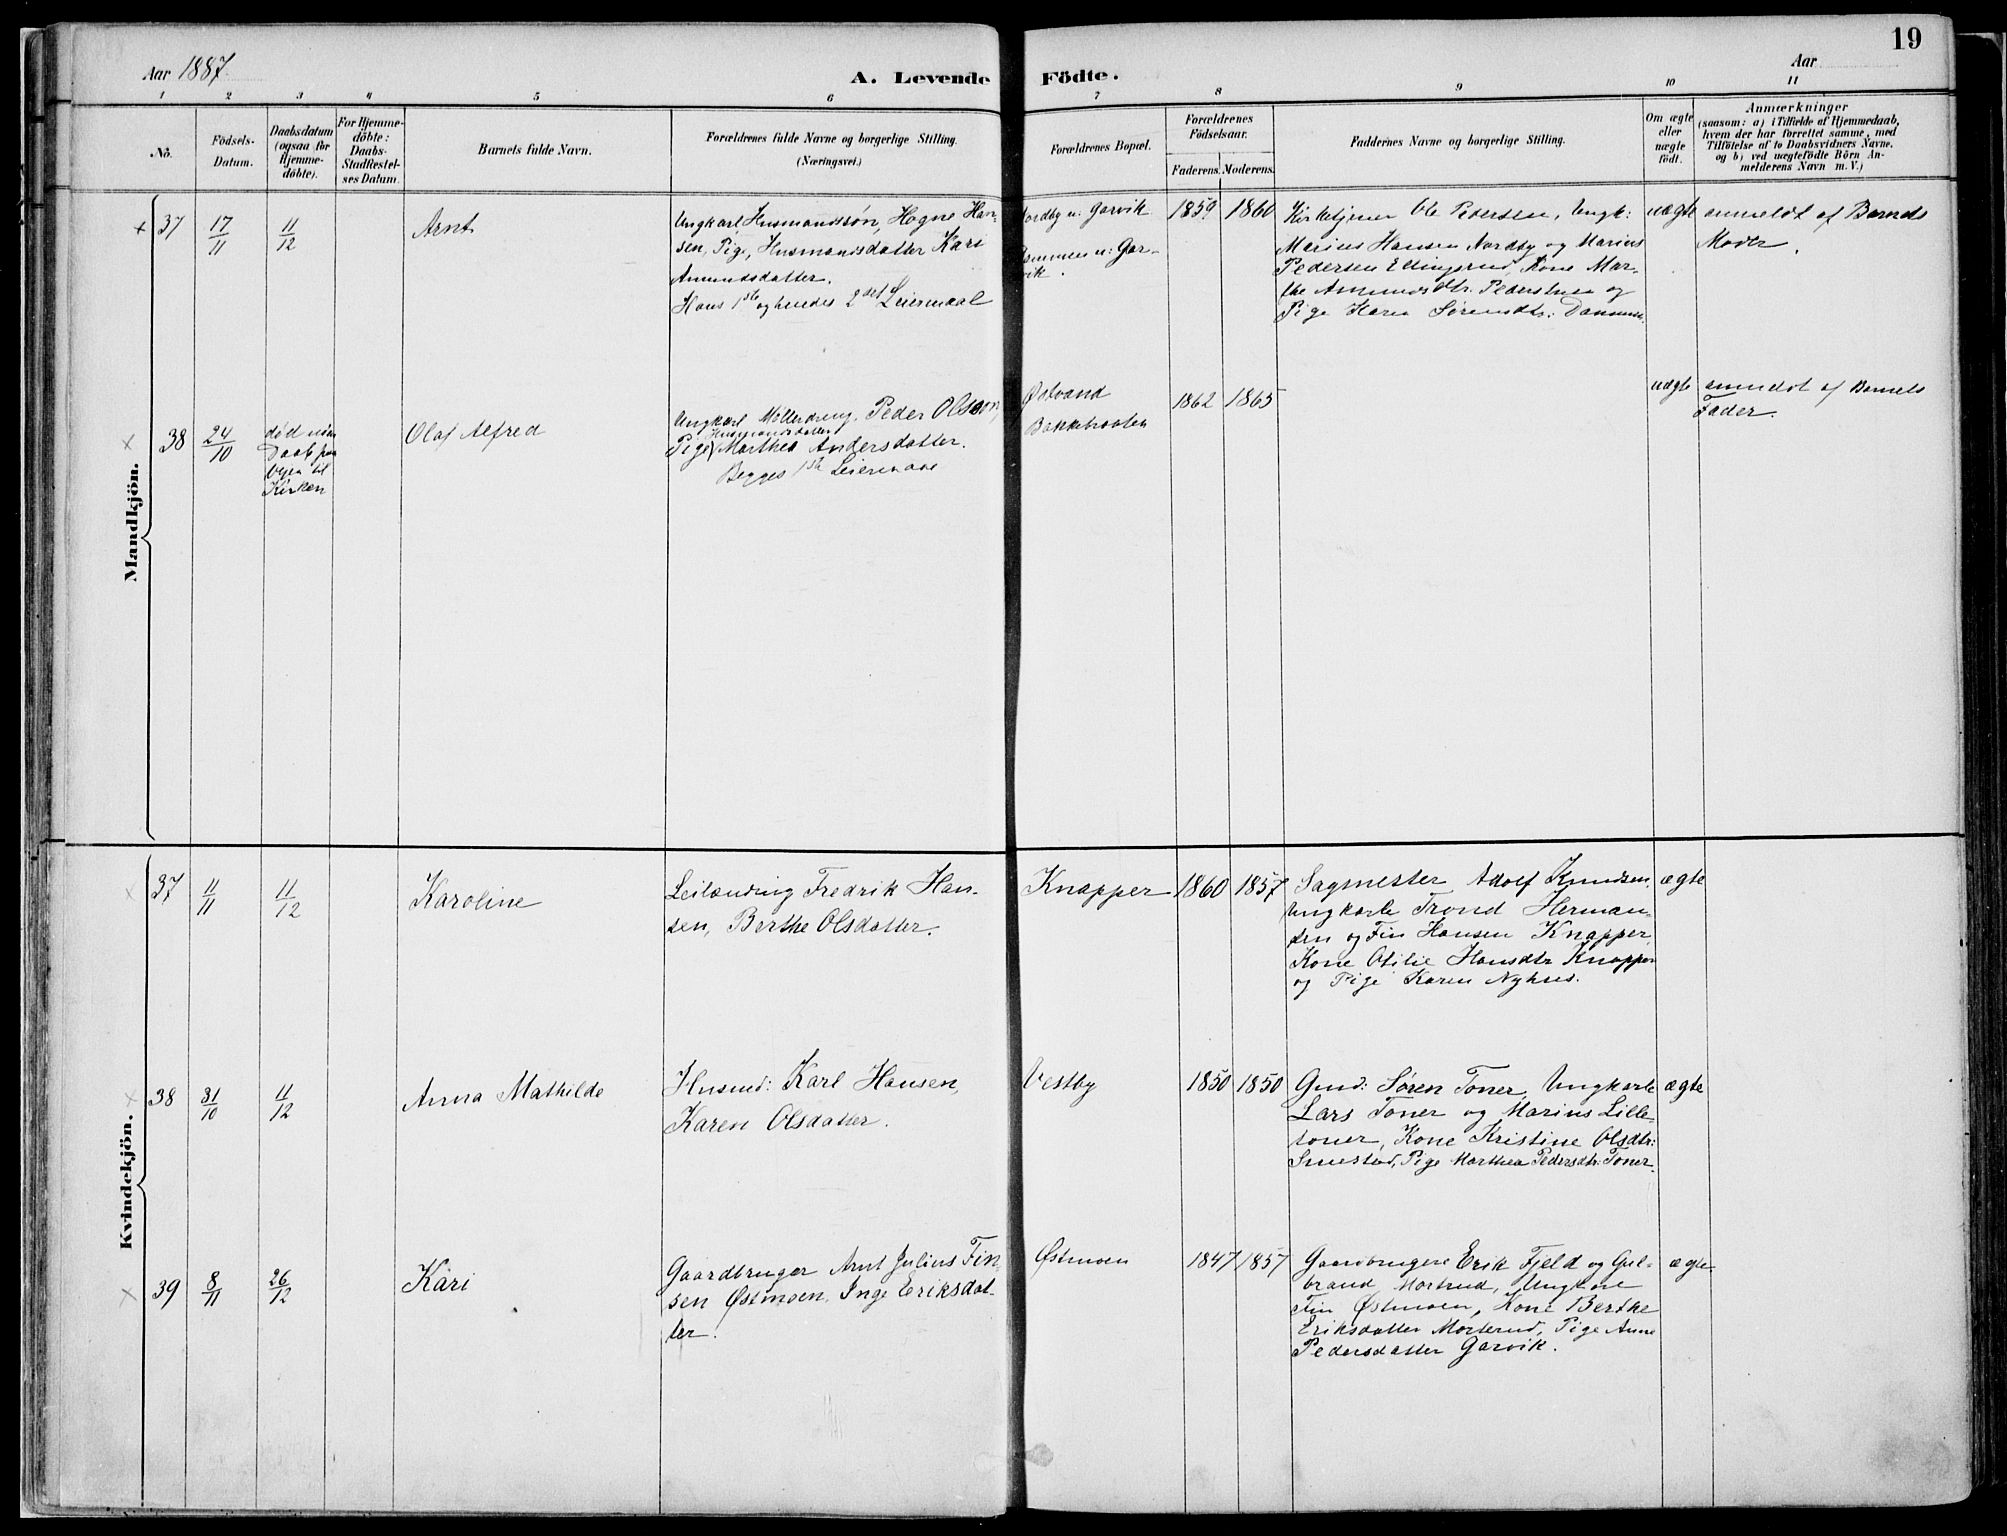 19
Aar 1887.
A. Levende Födte.
Aar
1 2 3 4 5 6 7 8 9 10 11
No.
Födsels-
Datum.
Daabsdatum
(ogsaa for
Hjemme-
döbte).
For Hjemme-
döbte:
Daabs-
Stadfæstel-
ses Datum.
Barnets fulde Navn.
Forældrenes fulde Navne og borgerlige Stilling.
(Næringsvei.)
Forældrenes Bopæl.
Forældrenes
Födselsaar.
Faderens. Moderens.
Faddernes Navne og borgerlige Stilling.
Om ægte
eller
uægte
födt.
Anmærkninger
(saasom: a) i Tilfælde af Hjemmedaab,
hvem der har forrettet samme, med
Tilföielse af to Daabsvidners Navne.
og b) ved uægtefödte Börn An-
melderens Navn m. V.)
Mandkjön.
+ 37
17/11
11/12
Arnt
Ungkarl Husmandssøn, Hogne Han-
sen, Pige, Husmandsdatter Kari
Amundsdatter.
Hans 1ste og hendes 2det Leiermaal
Nordby u: Garvik
u: Gar-
vik.
1859
1860
Kirketjener Ole Pedersen, Ungk:
Marius Hansen Nordby og Marius
Pedersen Ellingsrud, Kone Mar-
the Amundsdtr. Pederstuen og
Pige Karen Sørensdtr:
uægte
anmeldt af Barnets
Moder.
x 38
24/10
død uden
Daab paa
Vejen til
Kirken
Olaf Alfred
Ungkarl Møllerdreng, Peder Olsson,
Husmandsdatter
Pige Marthea Andersdatter.
Begges 1ste Leiermaal
Østvand
Bakkehaaten
1862
1865
uægte
anmeldt af Barnets
Fader.
Kvindekjön.
x 37
11/11
11/12
Karoline
Leilænding Fredrik Han-
sen, Berthe Olsdatter.
Knapper
1860
1857
Sagmester Adolf Knudsen,
Ungkarle Trond Herman-
sen og Fin Hansen Knapper,
Kone Otilie Hansdtr Knapper
og Pige Karen Nyhus.
ægte
x 38
31/10
11/12
Anna Mathilde
Husmd: Karl Hansen,
Karen Olsdatter.
Vestby
1850
1850
Gmd: Søren Toner, Ungkarle
Lars Toner og Marius Lille-
toner, Kone Kristine Olsdtr:
Smestad, Pige Marthea Pedersdtr: Toner.
ægte
x 39
8/11
26/12
Kari
Gaardbruger Arnt Julius Fin-
sen Østmoen, Inge Eriksdat-
ter.
Østmoen
1847
1857
Gaardbrugere Erik Fjeld og Gul-
brand Morterud, Ungkarl
Fin Østmoen, Kone Berthe
Eriksdatter Morterud, Pige Anne
Pedersdatter Garvik.
ægte